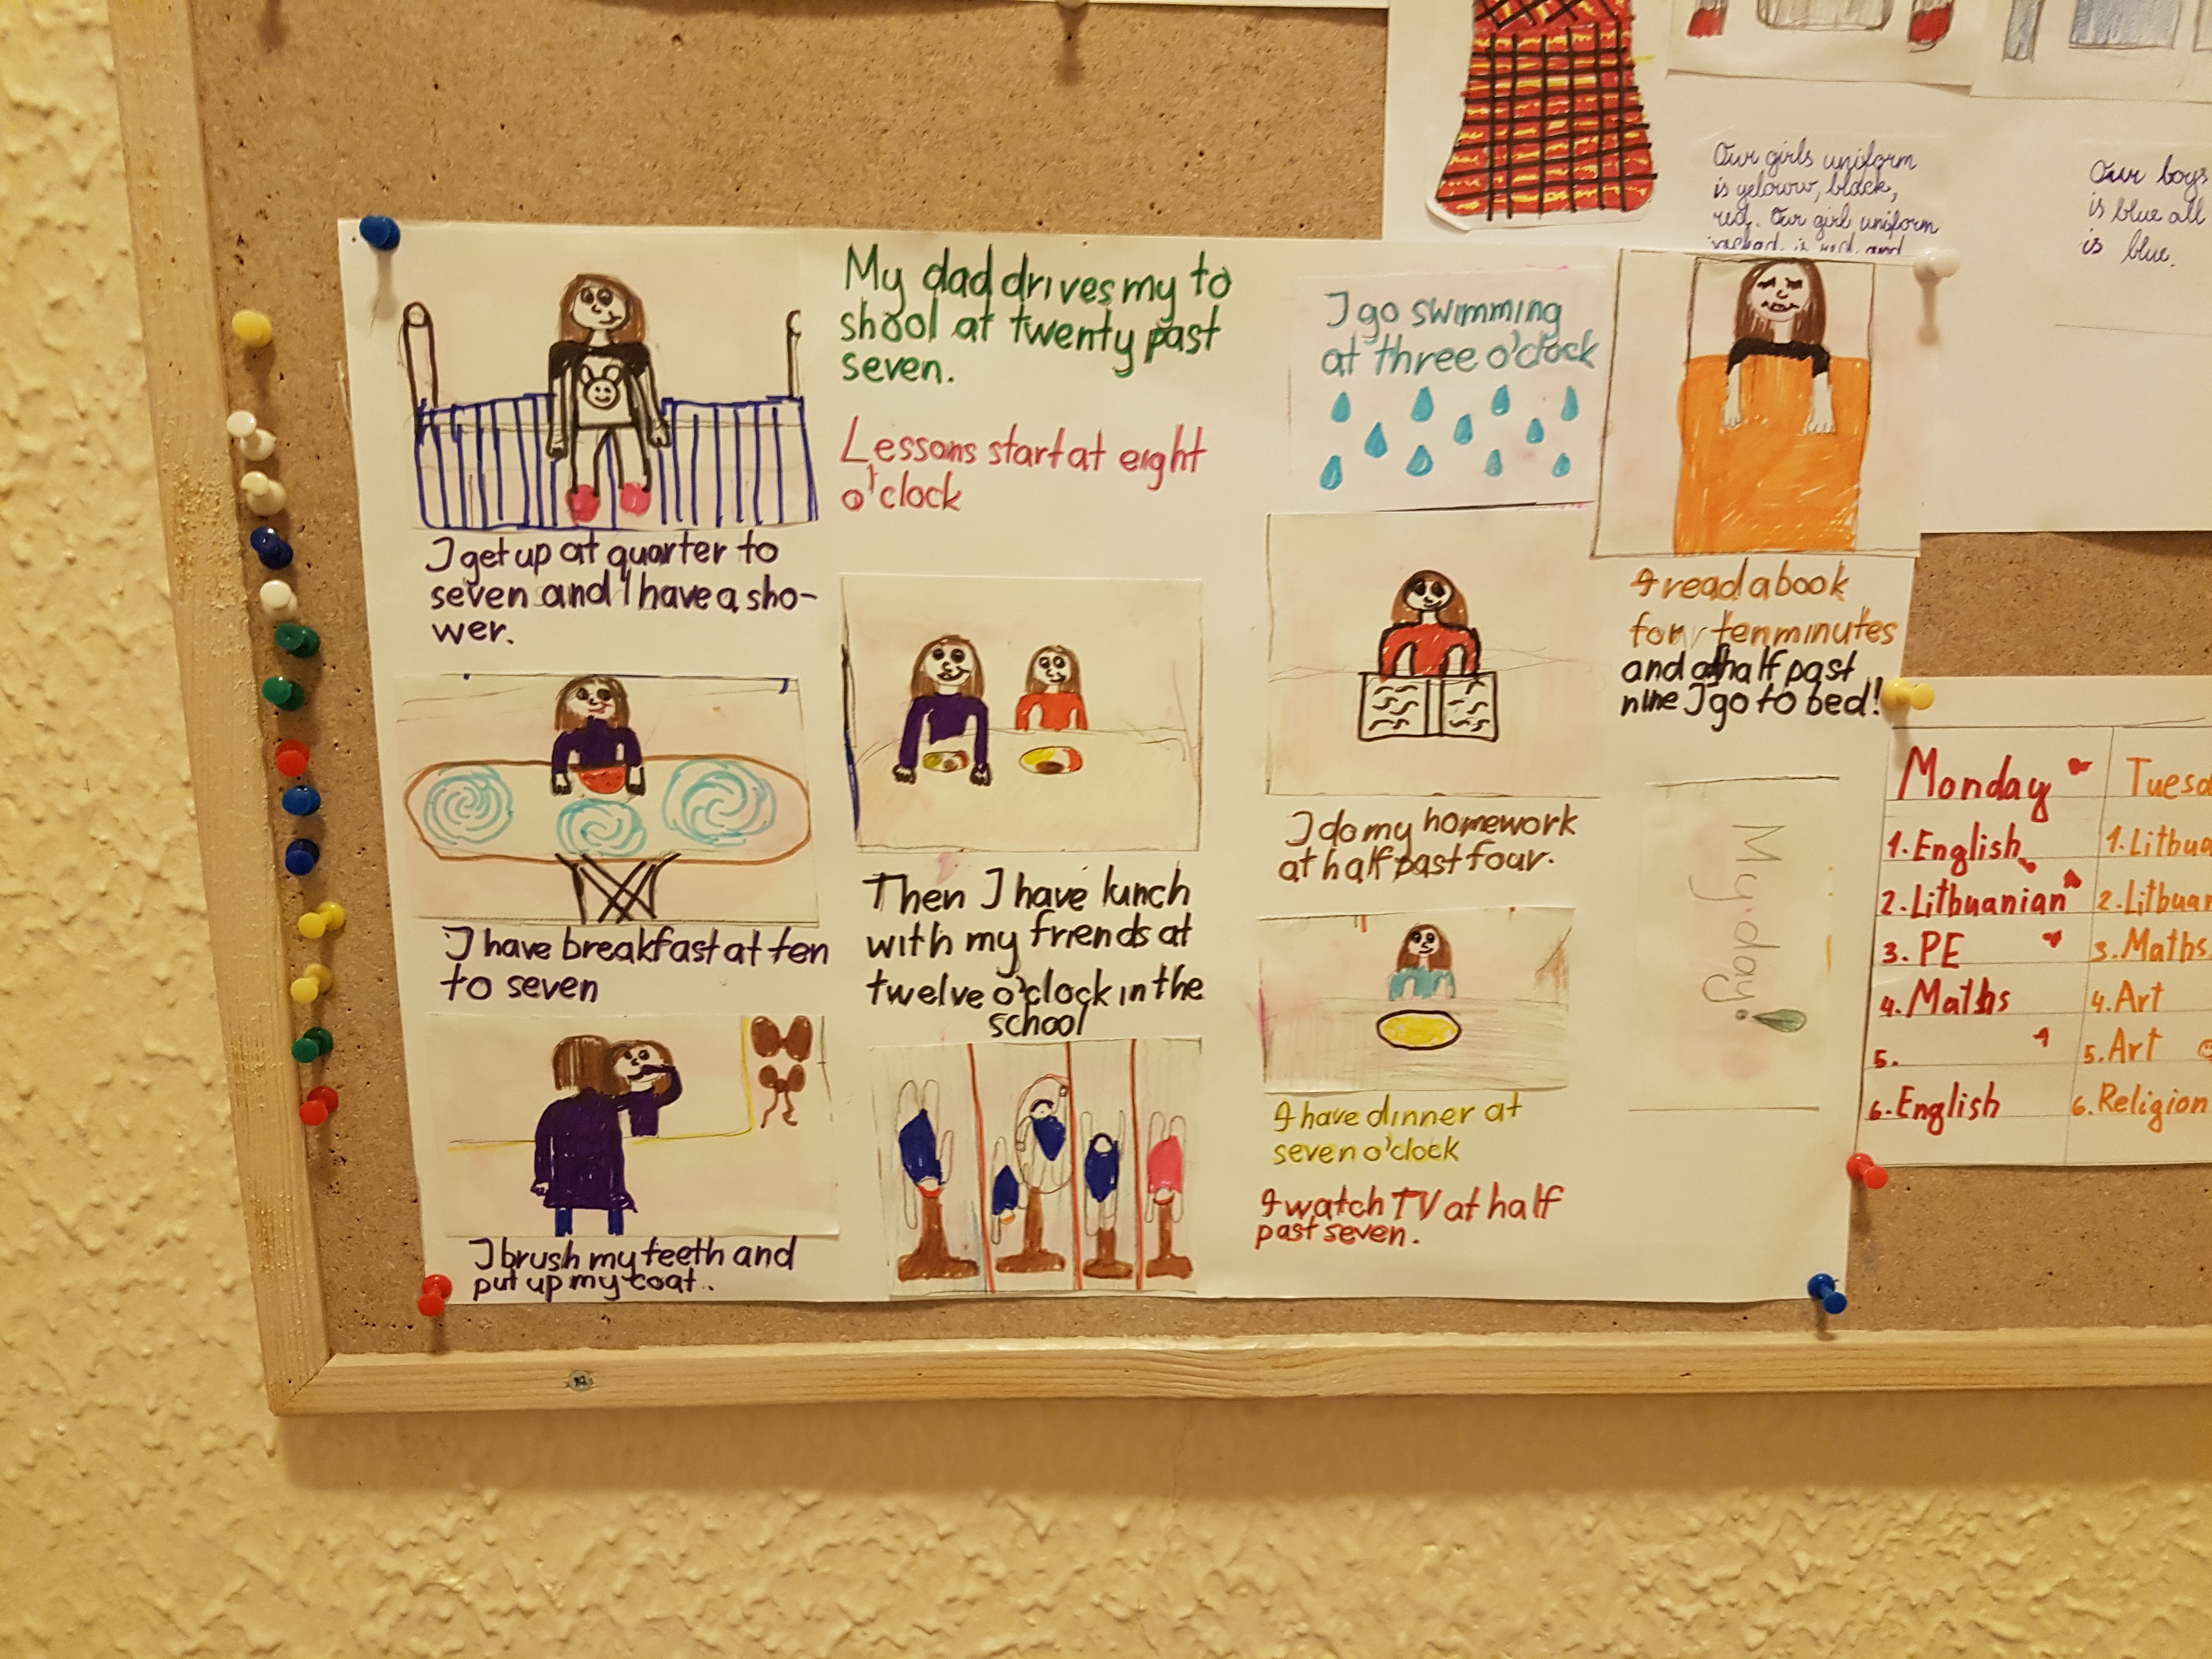 I get up at quarter to
seven and I have a sho-
wer.
I have breakfast at ten
to seven
I brush my teeth and
put up my coat..
My dad drives my to
shool at twenty past
seven.
Lessons start at eight
o'clock
Then I have lunch
with my friends at
twelve o'clock in the
school
I go swimming
at three o'clock
I do my homework
at half past four.
I have dinner at
seven o'clock
I watch TV at half
past seven.
I read a book
for ten minutes
and at half past
nine I go to bed!
My day!
Our girls uniform
is yeloww, black,
red. Our girl uniform
is red and
Our boys
is blue all
is blue.
Monday
1. English
2. Lithuanian
3. PE
4. Maths
5.
6. English
Tuesd
1. Lithua
2. Lithuan
3. Maths.
4. Art
5. Art
6. Religion